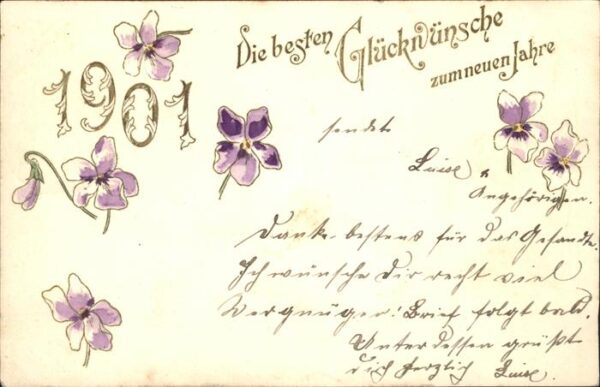 1901
Die besten Glückwünsche
zum neuen Jahre
sendet
Luise &
Angehörigen.
Danke bestens für das Gesandte.
Ich wünsche Dir recht viel
Vergnügen! Brief folgt bald.
Unterdessen grüßt
dich herzlich Luise.